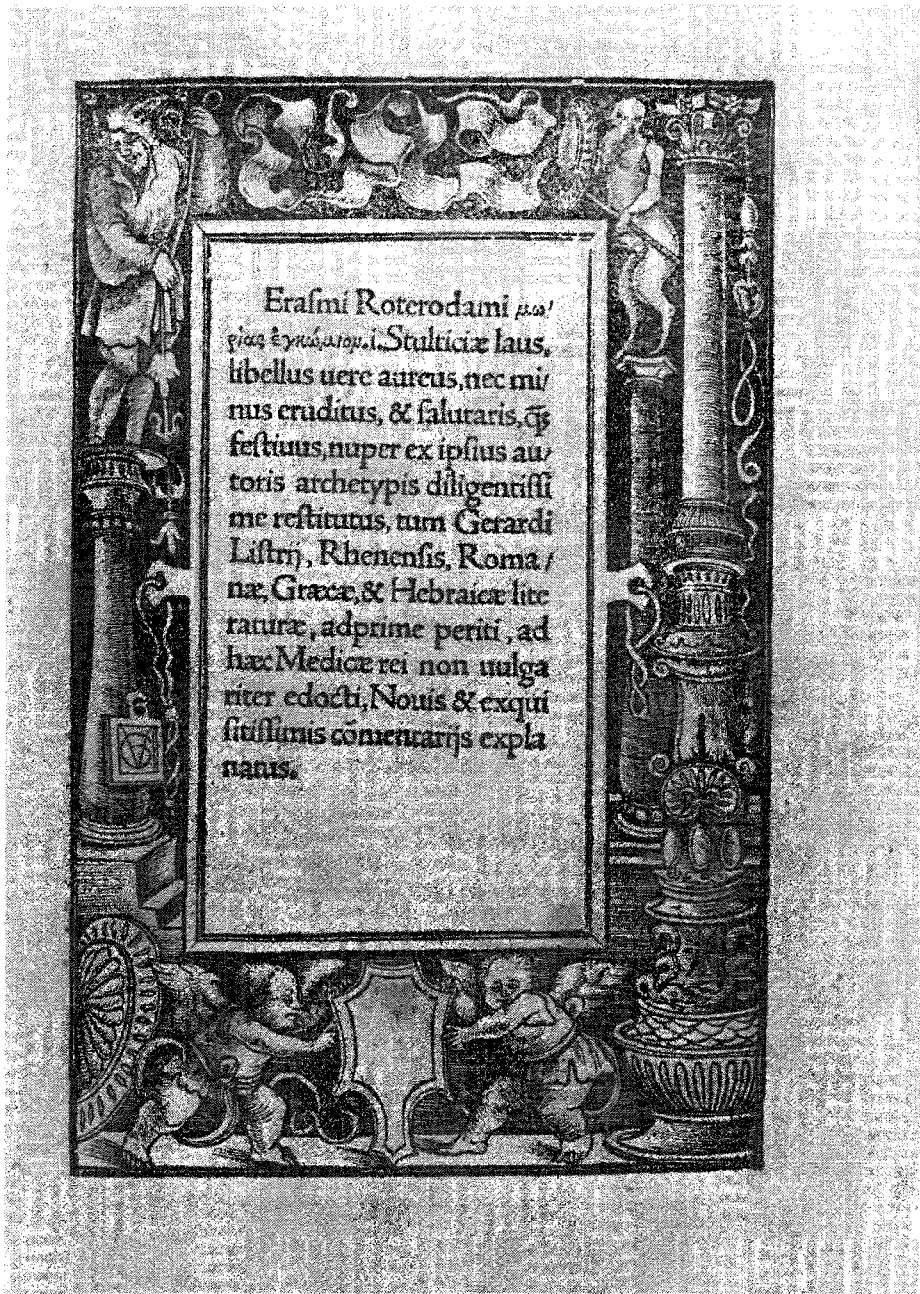 Eraſmi Roterodami μω/
ρίας ἐγκώμιομ.i.Stulticiæ laus,
libellus uere aureus, nec mi/
nus eruditus, & ſalutaris, q̃ꝫ
feſtiuus, nuper ex ipſius au/
toris archetypis diligentiſſi
me reſtitutus, tum Gerardi
Liſtrij, Rhenenſis, Roma/
næ, Græcæ, & Hebraicæ lite
raturæ, adprime periti, ad
hæc Medicæ rei non uulga
riter edocti, Nouis & exqui
ſitiſſimis cōmentarijs expla
natus.